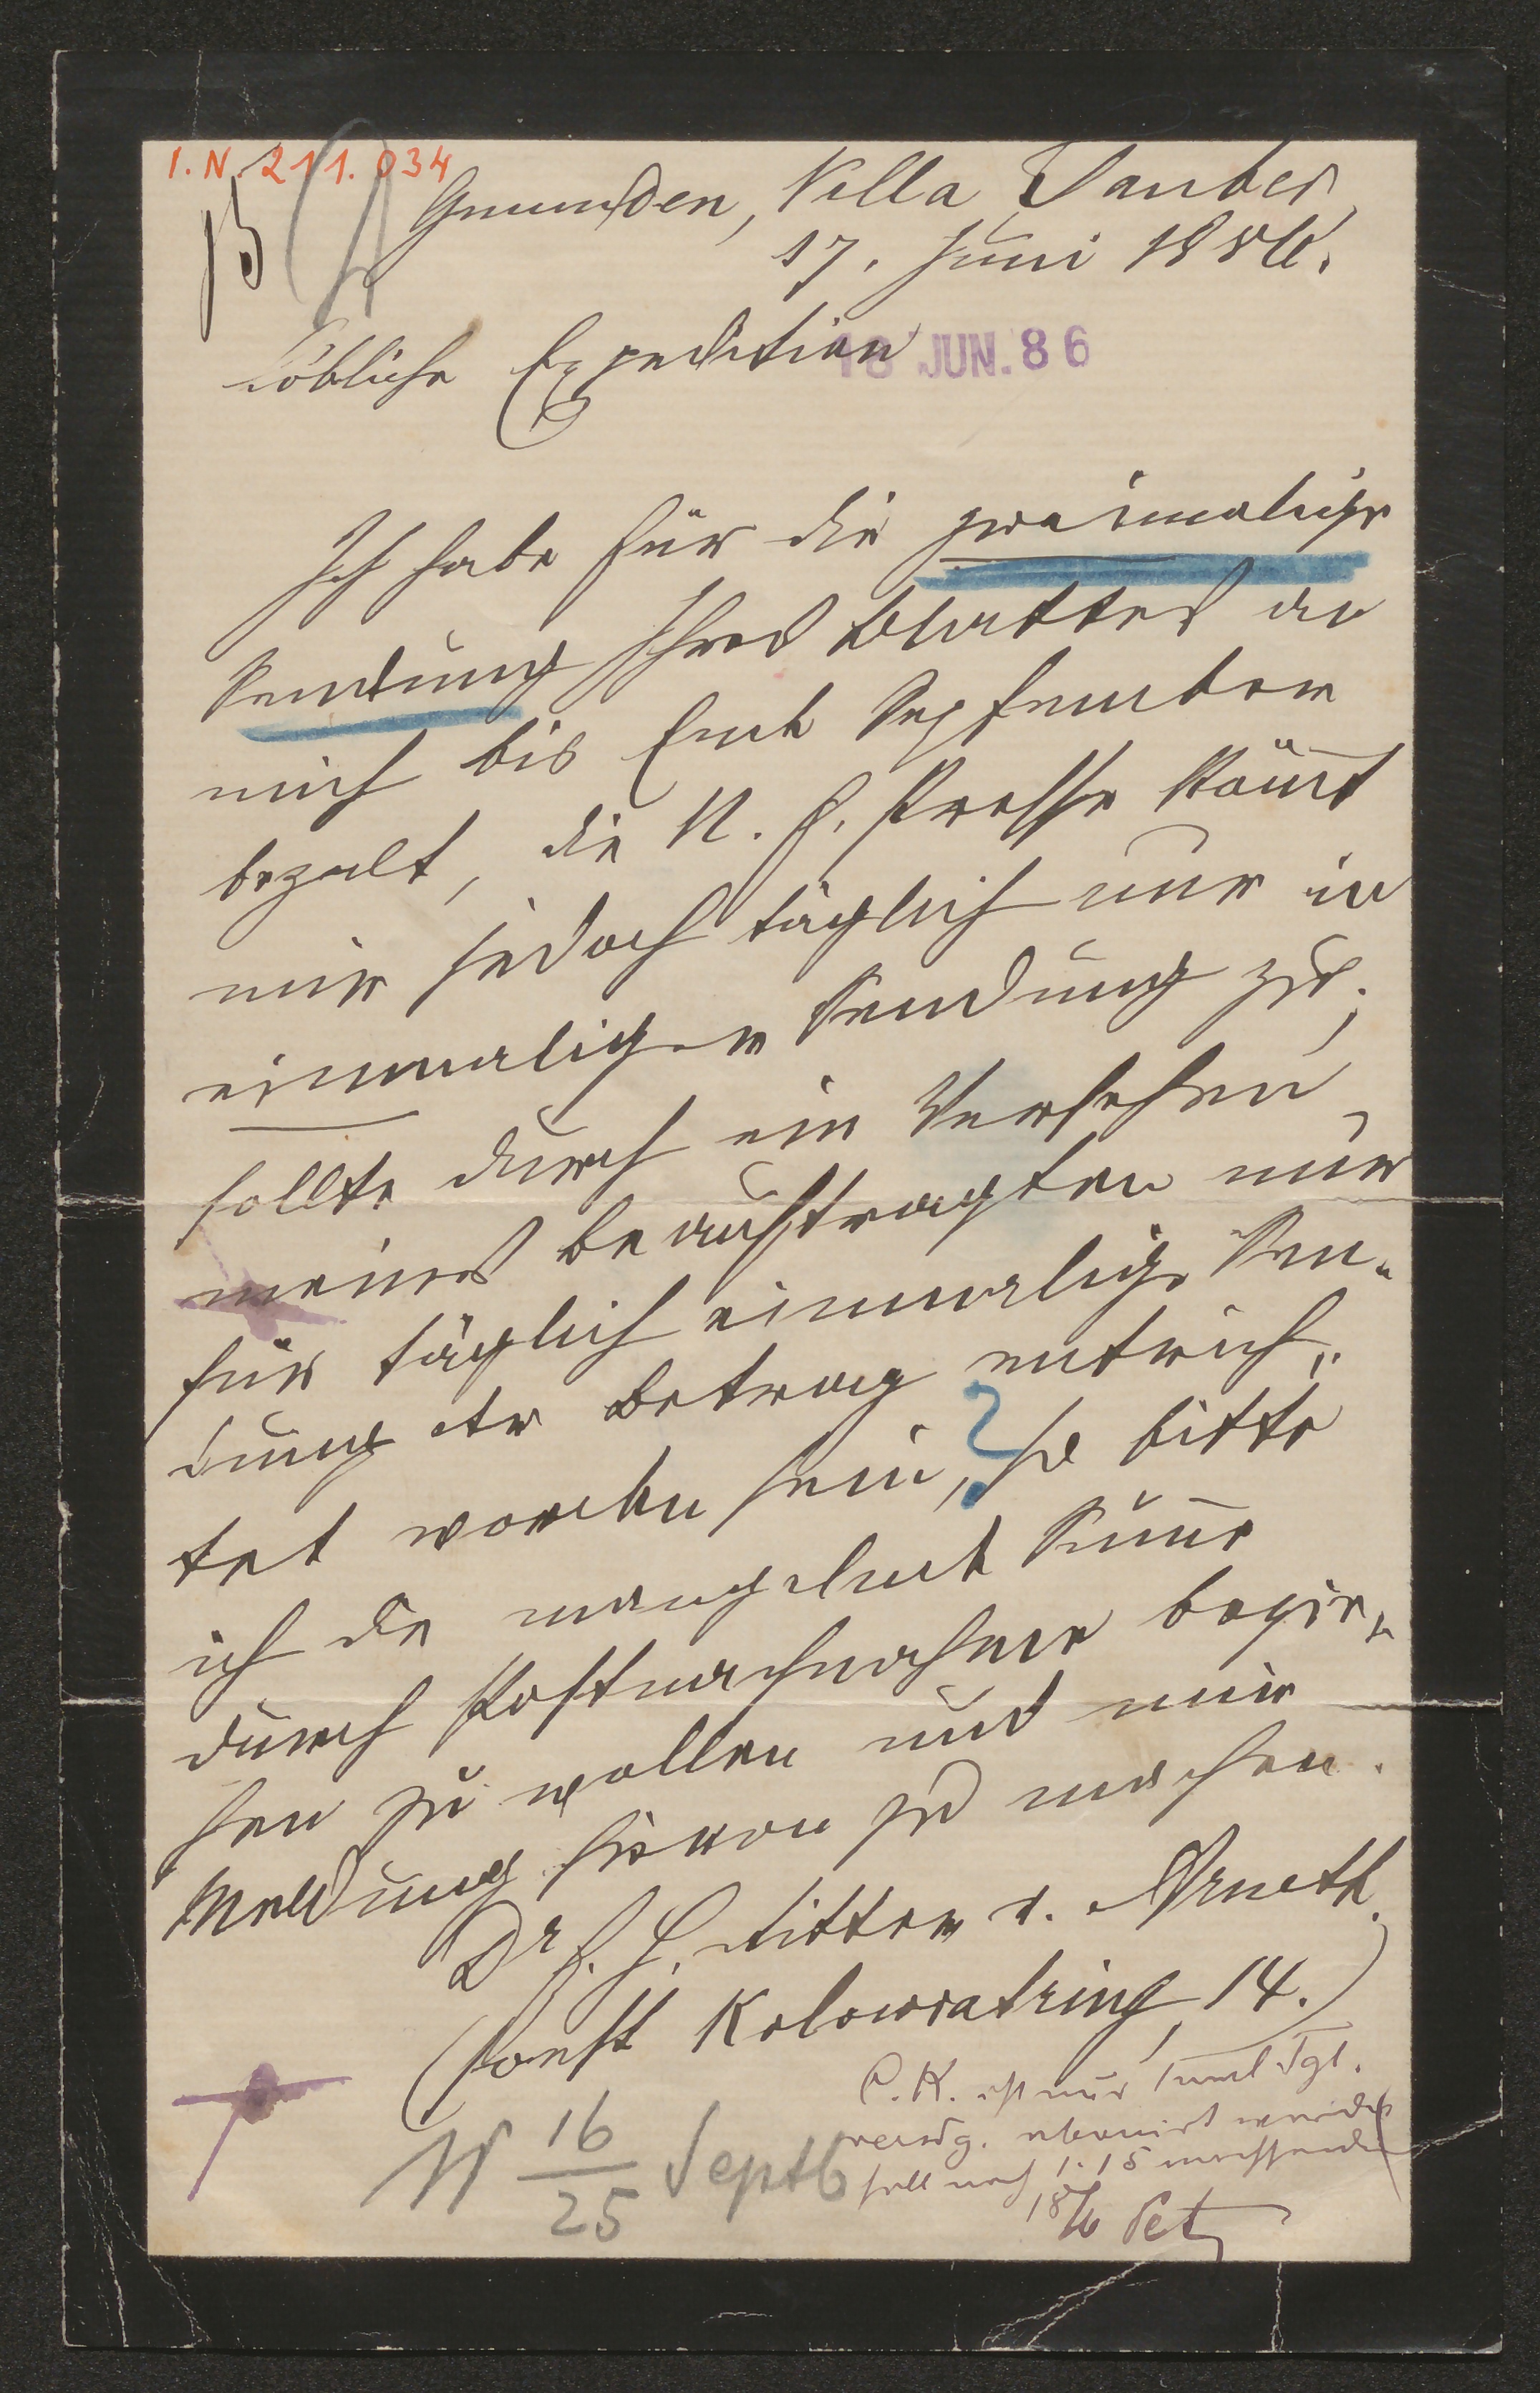 I.N. 211.034
Gmunden, Villa Tauber,
17. Juni 1886.
Löbliche Expedition
18 JUN. 86
Ich habe für die zweimalige
Sendung Ihres Blattes an
mich bis Ende September
bezalt, die N. f. Presse kom̄t
mir jedoch täglich nur in
einmaliger Sendung zu;
sollte durch ein Versehen
meines Beauftragten nur
für täglich einmalige Sen-
dung der Betrag entrich-
tet worden sein, so bitte
?
ich die mangelnde Sum̄e
durch Postnachnahme bezie-
hen zu wollen und mir
Meldung hievon zu machen.
Dr. F. H. Ritter v. Arneth.
(sonst Kolowratring, 14.)
C. K. ist nur 1 mal tgl.
soll noch 1.15
18/6
16
25
Septb